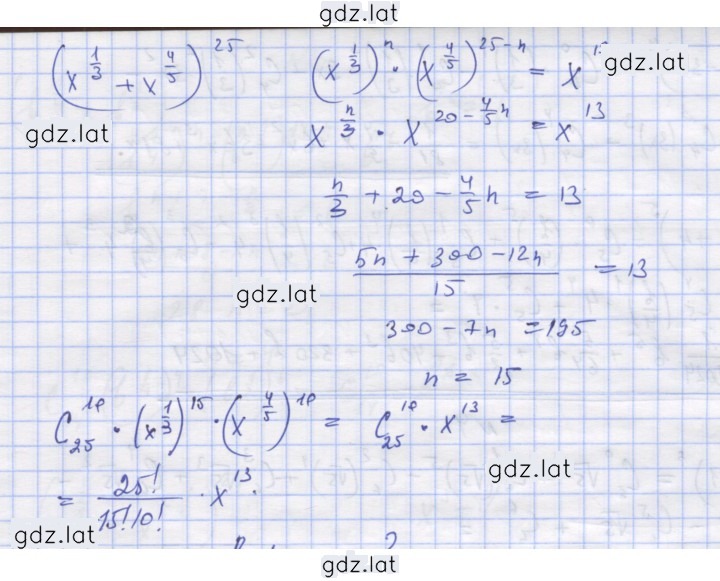 gdz.lat
(x^{1/3} + x^{4/5})^{25} (x^{1/3})^n · (x^{4/5})^{25-n} = x gdz.lat
gdz.lat x^{n/3} · x^{20 - 4/5 n} = x^{13}
n/3 + 20 - 4/5 n = 13
(5n + 300 - 12n)/15 = 13
gdz.lat
300 - 7n = 195
n = 15
C_{25}^{10} · (x^{1/3})^{15} · (x^{4/5})^{10} = C_{25}^{10} · x^{13} =
gdz.lat
= 25!/(15!10!) · x^{13}.
gdz.lat
gdz.lat
gdz.lat